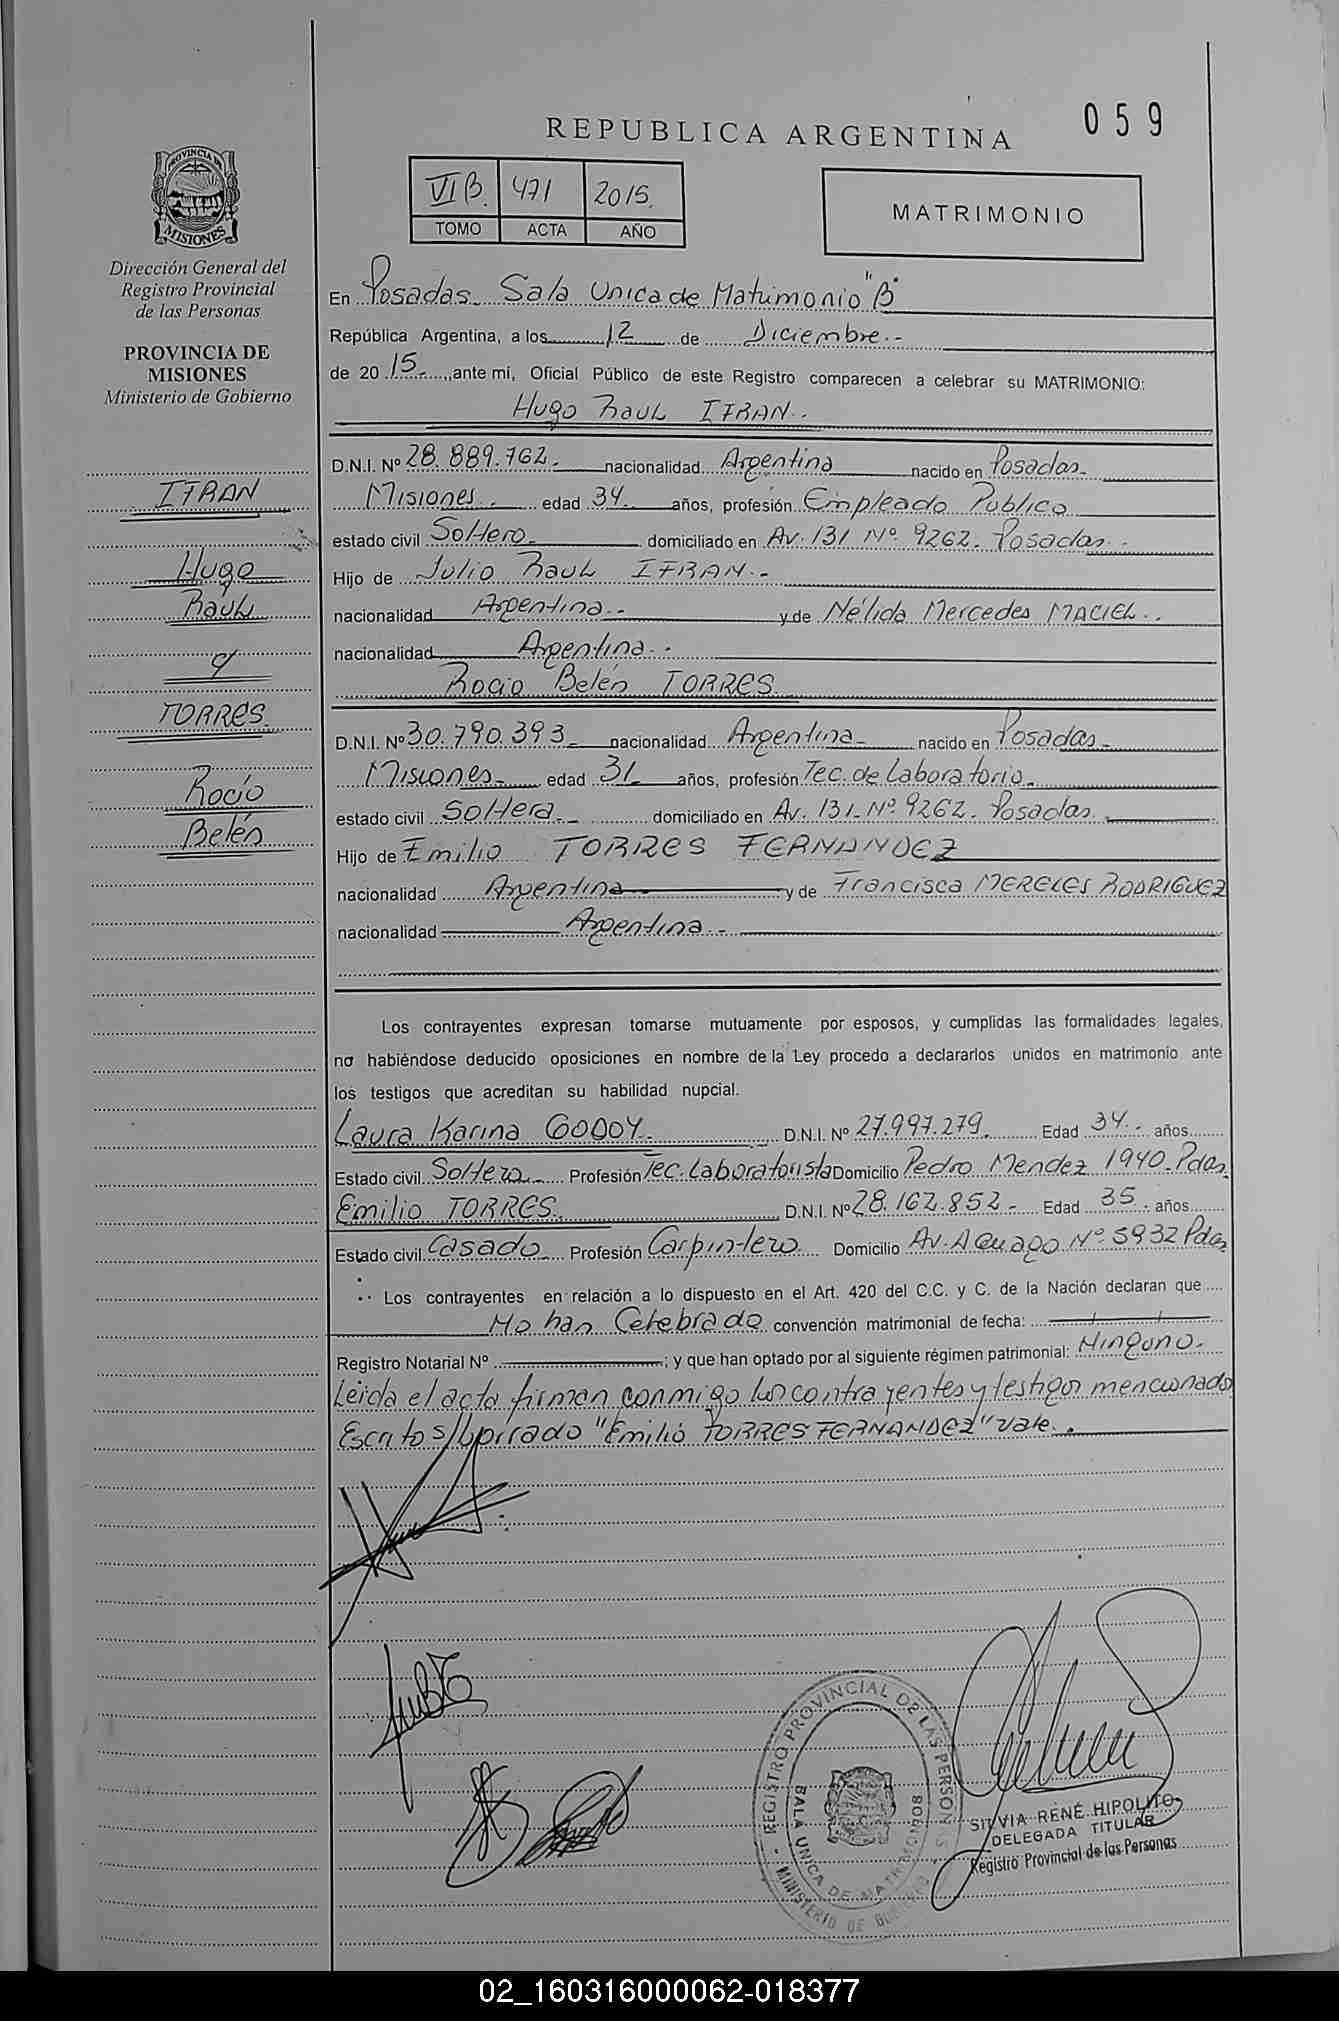 059
REPUBLICA ARGENTINA
VI B. 471 2015.
TOMO ACTA AÑO
MATRIMONIO
PROVINCIA DE
MISIONES
Dirección General del
Registro Provincial
de las Personas
PROVINCIA DE
MISIONES
Ministerio de Gobierno
IFRAN
Hugo
Raúl
y
TORRES.
Rocío
Belén
En Posadas Sala Unica de Matrimonio "B"
República Argentina, a los 12 de Diciembre.-
de 2015.- ,ante mi, Oficial Público de este Registro comparecen a celebrar su MATRIMONIO:
Hugo Raul IFRAN.-
D.N.I. Nº 28.889.762.- nacionalidad Argentina nacido en Posadas-
Misiones.- edad 34 años, profesión Empleado Publico
estado civil Soltero- domiciliado en Av. 131 Nº 9262. Posadas.-
Hijo de Julio Raul IFRAN.-
nacionalidad Argentina.- y de Nélida Mercedes MACIEL.-
nacionalidad Argentina.-
Rocio Belén TORRES.
D.N.I. Nº 30.790.393- nacionalidad Argentina- nacido en Posadas-
Misiones- edad 31 años, profesión Tec. de Laboratorio-
estado civil Soltera.- domiciliado en Av. 131-Nº 9262. Posadas.
Hijo de Emilio TORRES FERNANDEZ
nacionalidad Argentina y de Francisca MERELES RODRIGUEZ
nacionalidad Argentina.-
Los contrayentes expresan tomarse mutuamente por esposos, y cumplidas las formalidades legales,
no habiéndose deducido oposiciones en nombre de la Ley procedo a declararlos unidos en matrimonio ante
los testigos que acreditan su habilidad nupcial.
Laura Karina GODOY. D.N.I. Nº 27.997.279. Edad 34.- años
Estado civil Soltera Profesión Tec. Laboratorista Domicilio Pedro Mendez 1940-Pdas
Emilio TORRES. D.N.I. Nº 28.162.852- Edad 35.- años
Estado civil Casado Profesión Carpintero Domicilio Av. Nº 5932 Pdas
Los contrayentes en relación a lo dispuesto en el Art. 420 del C.C. y C. de la Nación declaran que
No han Celebrado convención matrimonial de fecha:
Registro Notarial Nº ; y que han optado por al siguiente régimen patrimonial: Ninguno.
Leida el acta firman conmigo los contrayentes y testigos mencionado
Escrito s/borrado "Emilio TORRES FERNANDEZ" vale.
REGISTRO PROVINCIAL DE LAS PERSONAS
SALA UNICA DE MATRIMONIOS
MINISTERIO DE GOBIERNO
SILVIA RENÉ HIPOLITO
DELEGADA TITULAR
Registro Provincial de las Personas
02_160316000062-018377